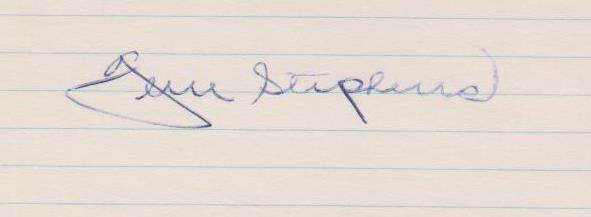 Gene Stephens